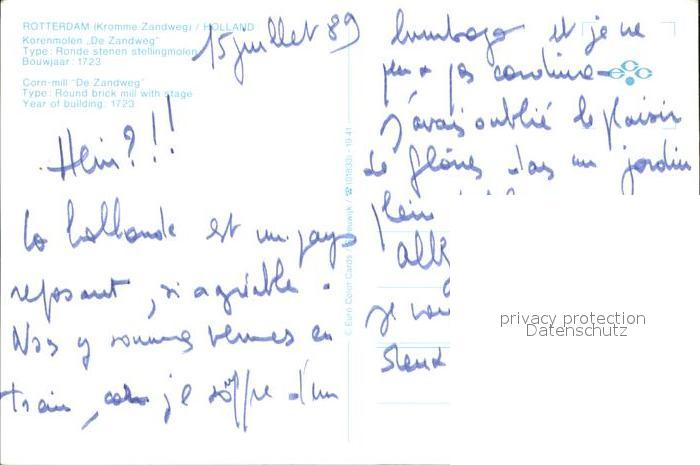 ROTTERDAM (Kromme Zandweg) / HOLLAND
Korenmolen "De Zandweg"
Type: Ronde stenen stellingmolen
Bouwjaar: 1723
Corn-mill "De Zandweg"
Type: Round brick mill with stage
Year of building: 1723
15 juillet 89
Hein?!!
La hollande est un pays
reposant, si agréable.
Nous y sommes venues en
train, je souffre d'un
lumbago et je ne
peux pas conduire
J'avais oublié le plaisir
de flâner dans un jardin
plein
je vou
© Euro Color Cards / ☎ (01833) - 19 41
privacy protection
Datenschutz